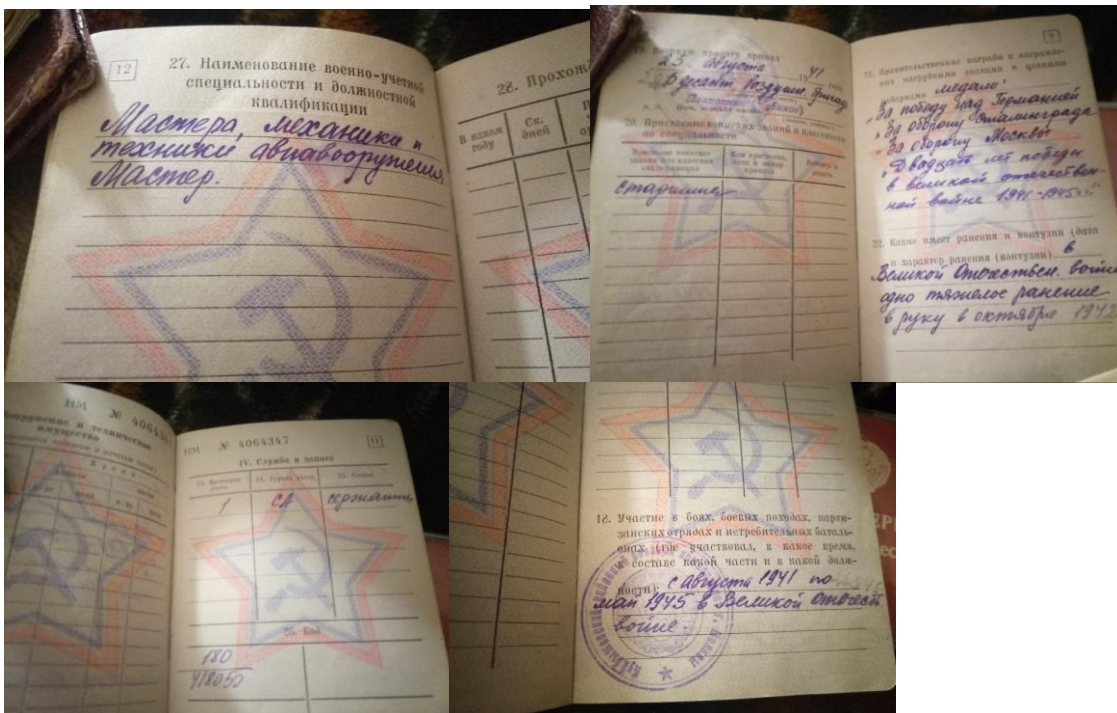 12
27. Наименование военно-учетной
специальности и должностной
квалификации
Мастера, механики и
техники авиавооружения
Мастер.
28. Прохожд
В каком
году
Ск.
дней
19. Военную присягу принял
25 августа 1941
десант. воздушн. бригад
20. Присвоение воинских званий и классности
по специальности
9
21. Правительственные награды и награжде-
ния нагрудными знаками и ценными
подарками медали
"За победу над Германией
"За оборону Сталинграда
"За оборону Москвы
"Двадцать лет победы
в великой отечествен-
ной войне 1941-1945гг"
22. Какие имеет ранения и контузии (дата
и характер ранения (контузии) в
Великой Отечествен. войне
одно тяжелое ранение
в руку в октябре 1942
НИ № 40643
Вооружение и техническое
имущество
Время
НИ № 4064347
11
IV. Служба в запасе
23. Категория
учета
24. Группа учета
25. Состав
1 СА сержанты
26. Код
180
418050
18. Участие в боях, боевых походах, парти-
занских отрядах и истребительных баталь-
онах (где участвовал, в какое время,
в составе какой части и в какой долж-
ности) с августа 1941 по
май 1945 в Великой Отечеств
войне.